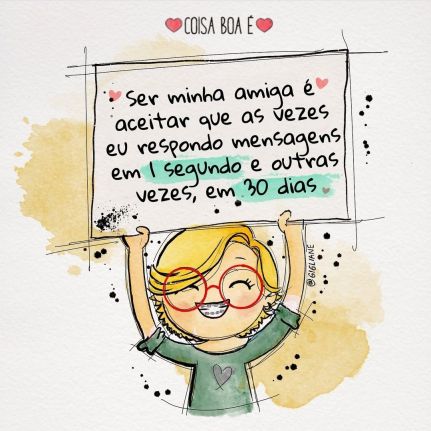 COISA BOA É
Ser minha amiga é
aceitar que as vezes
eu respondo mensagens
em 1 segundo e outras
vezes, em 30 dias
@GIGLIANE